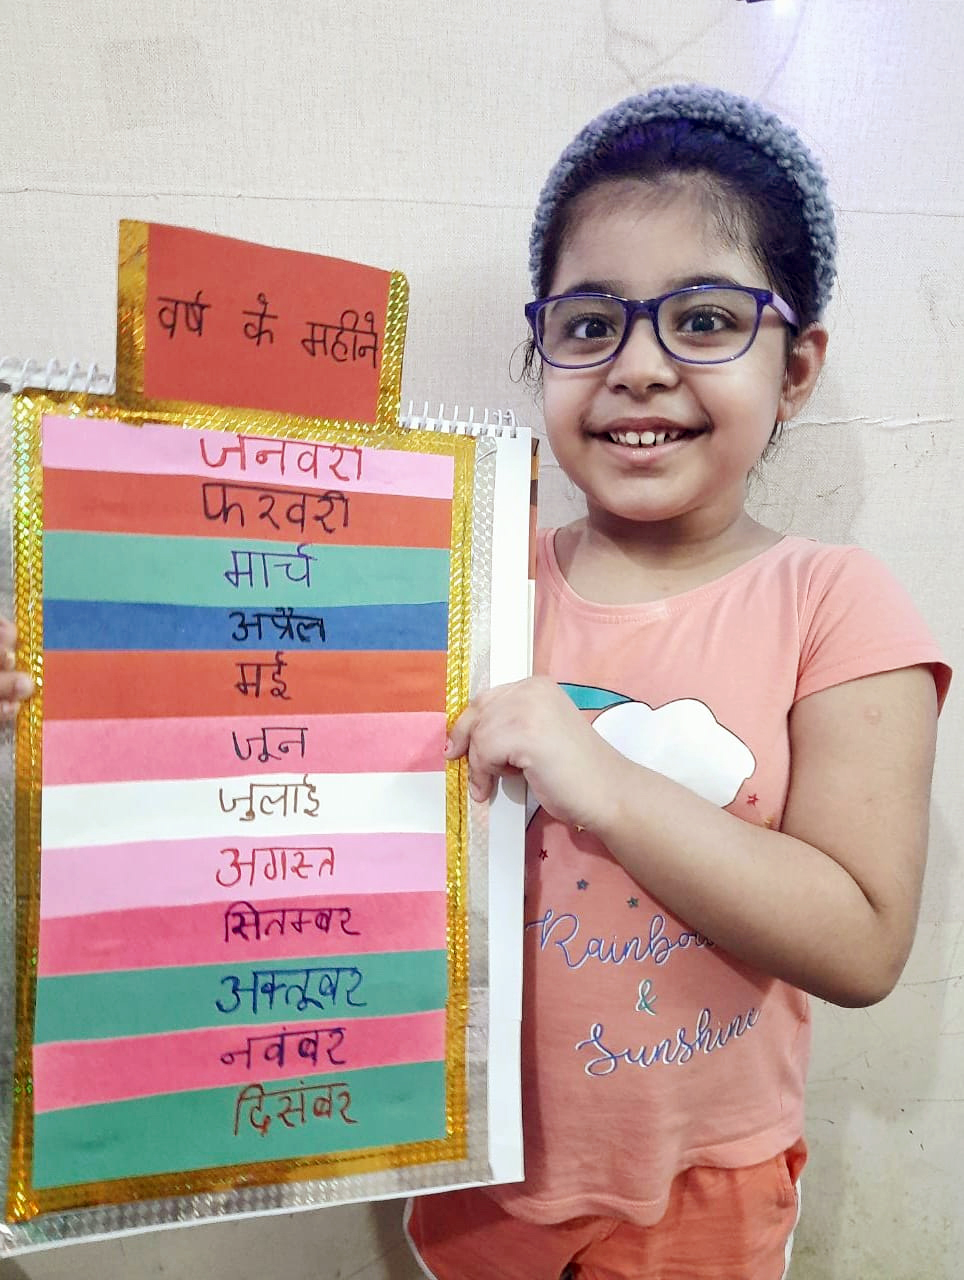 वर्ष के महीने
जनवरी
फरवरी
मार्च
अप्रैल
मई
जून
जुलाई
अगस्त
सितम्बर
अक्तूबर
नवंबर
दिसंबर
Rainbow
&
Sunshine